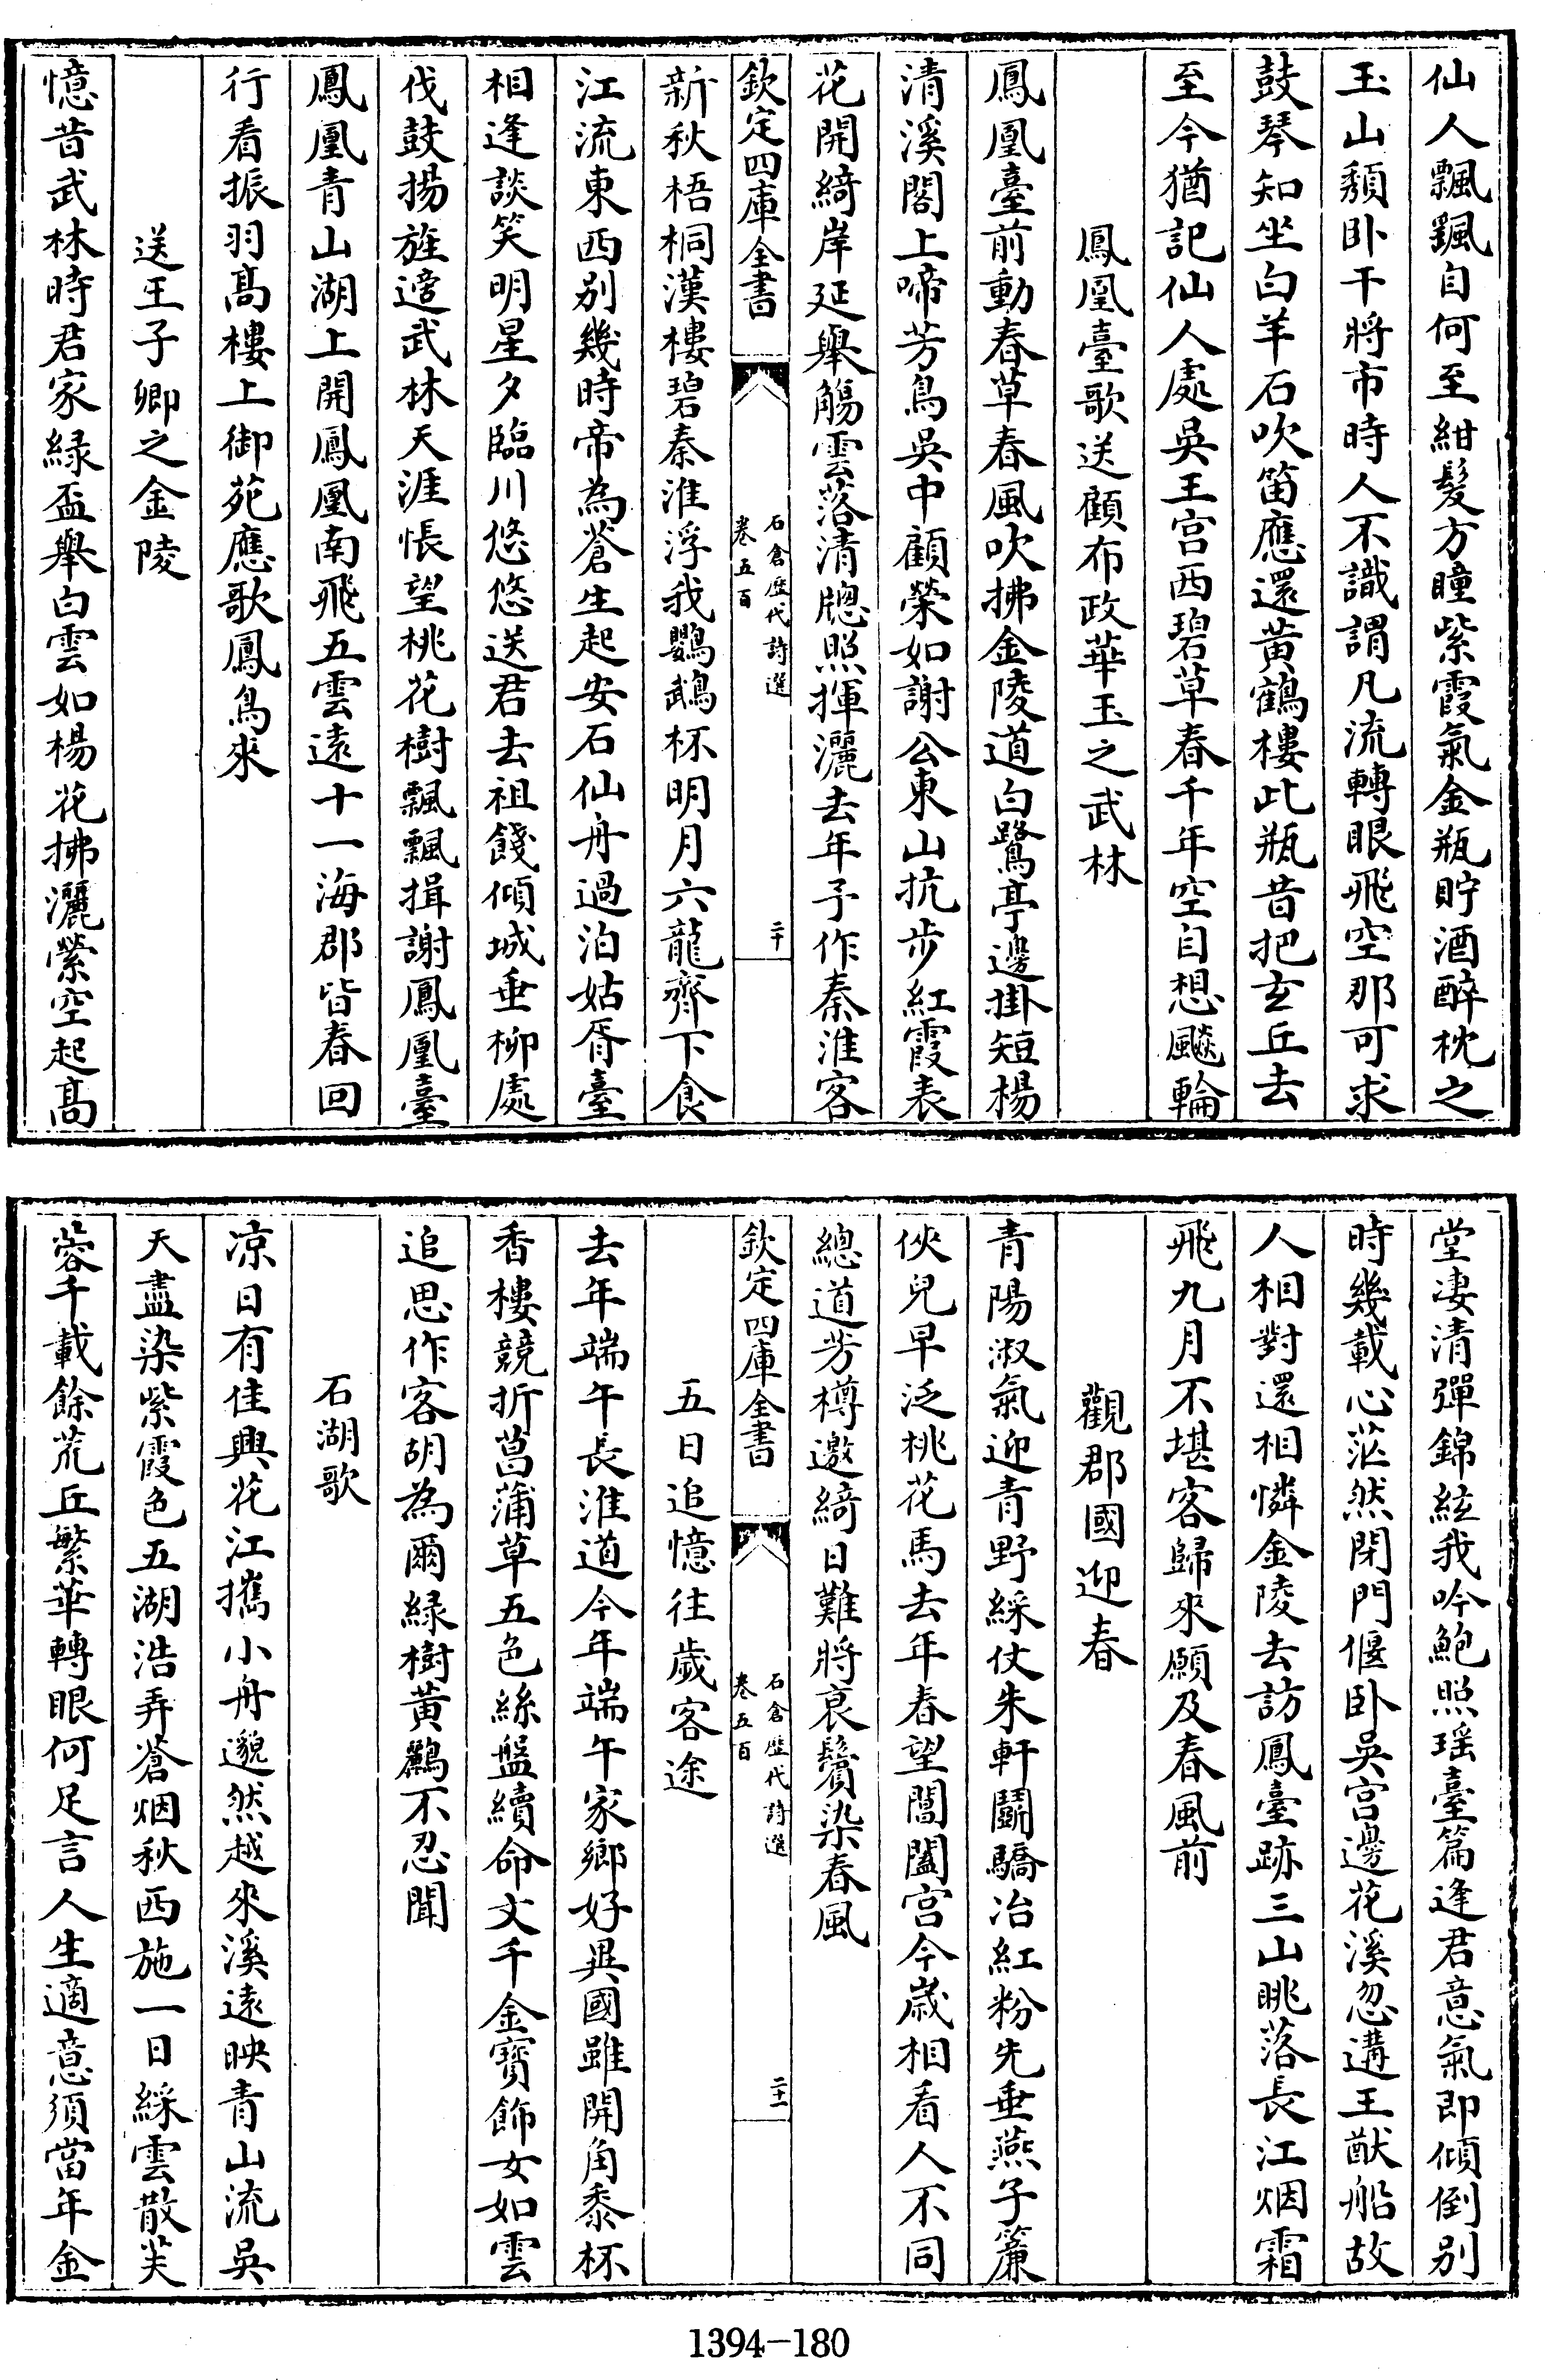 仙人飄飄自何至紺髮方瞳紫霞氣金瓶貯酒醉枕之
玉山頽卧干將市時人不識謂凡流轉眼飛空那可求
鼓琴知坐白羊石吹笛應還黄鶴樓此瓶昔把玄丘去
至今猶記仙人處吳王宫西碧草春千年空自想飈輪
鳳凰臺歌送顧布政華玉之武林
鳳凰臺前動春草春風吹拂金陵道白鷺亭邊掛短楊
清溪閣上啼芳鳥吳中顧榮如謝公東山抗步紅霞表
花開綺岸延舉觴雲落清牕照揮灑去年予作秦淮客
欽定四庫全書
石倉歴代詩選
卷五百
二十
新秋梧桐漢樓碧秦淮浮我鸚鵡杯明月六龍齊下食
江流東西别幾時帝為蒼生起安石仙舟過泊姑胥臺
相逢談笑明星夕臨川悠悠送君去祖餞傾城垂柳處
伐鼓揚旌遊武林天涯悵望桃花樹飄飄揖謝鳳凰臺
鳳凰青山湖上開鳳凰南飛五雲遠十一海郡皆春回
行看振羽髙樓上御苑應歌鳳鳥來
送王子卿之金陵
憶昔武林時君家緑盃舉白雲如楊花拂灑縈空起髙
堂凄清彈錦絃我吟鮑照瑶臺篇逢君意氣即傾倒别
時幾載心茫然閉門偃卧吳宫邊花溪忽遘王猷船故
人相對還相憐金陵去訪鳳臺跡三山眺落長江烟霜
飛九月不堪客歸來願及春風前
觀郡國迎春
青陽淑氣迎青野綵仗朱軒鬭驕冶紅粉先垂燕子簾
俠兒早泛桃花馬去年春望閶闔宫今歲相看人不同
總道芳樽邀綺日難將哀鬢染春風
欽定四庫全書
石倉歴代詩選
卷五百
二十一
五日追憶往歲客途
去年端午長淮道今年端午家鄉好異國雖開角黍杯
香樓競折菖蒲草五色絲盤續命文千金寳飾女如雲
追思作客胡為爾緑樹黄鸝不忍聞
石湖歌
凉日有佳興花江攜小舟邈然越來溪遠映青山流吳
天盡染紫霞色五湖浩弄蒼烟秋西施一日綵雲散芙
蓉千載餘荒丘繁華轉眼何足言人生適意須當年金
1394-180